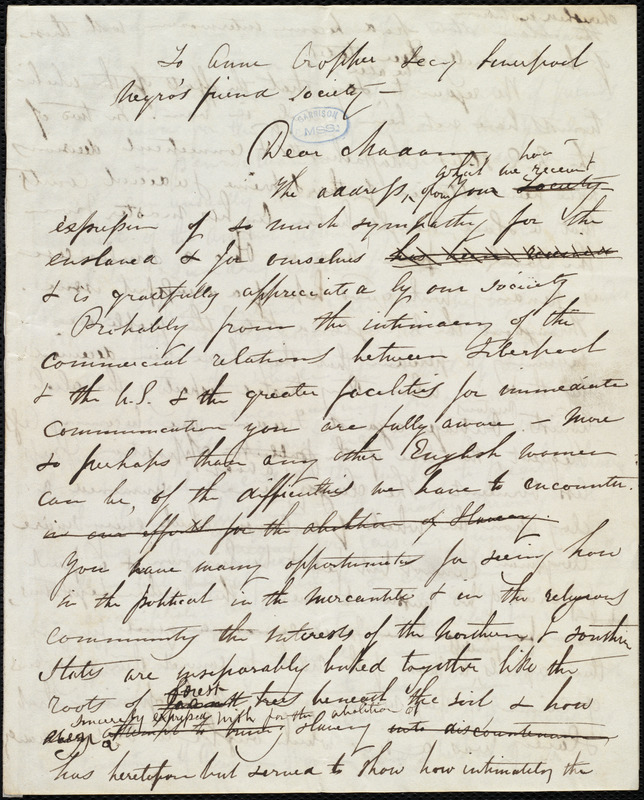 To Anne Cropper Secy Liverpool
Negro's friend Society —
Dear Madam,
The address, from your Society which we have received
expression of so much sympathy for the
enslaved & for ourselves has been received
& is gratefully appreciated by our society
Probably from the intimacy of the
commercial relations between Liverpool
& the U.S. & the greater facilities for immediate
communication you are fully aware & more
so perhaps than any other English women
can be, of the difficulties we have to encounter.
in our efforts for the abolition of Slavery.
You have many opportunities for seeing how
in the political in the mercantile & in the religious
community the interests of the Northern & Southern
States are inseparably linked together like the
roots of forest trees beneath the soil & how
sincerely expressed wish for the abolition of
every attempt to bring slavery into discountenance
has heretofore but served to show how intimately the